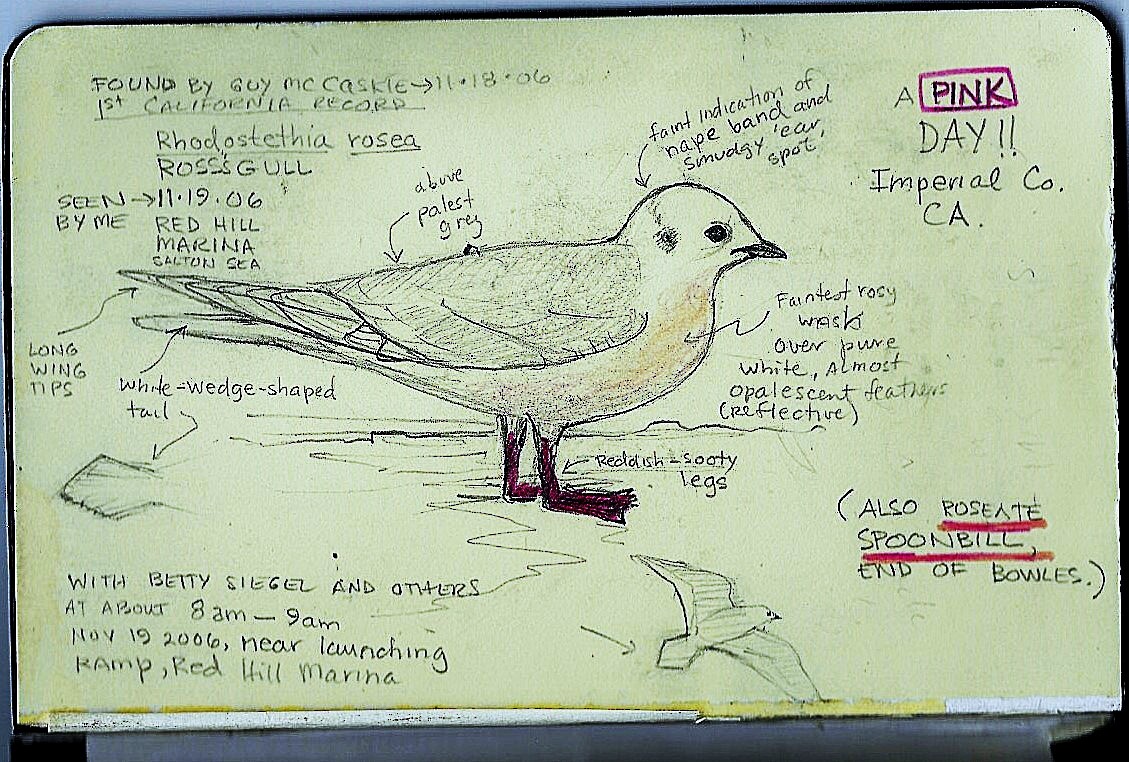 FOUND BY GUY MCCASKIE→11·18·06
1st CALIFORNIA RECORD
Rhodostethia rosea
ROSS'S GULL
SEEN→11·19·06
BY ME RED HILL
MARINA
SALTON SEA
above
palest
grey
faint indication of
nape band and
smudgy 'ear
spot'
A PINK
DAY!!
Imperial Co.
CA.
LONG
WING
TIPS
white=wedge-shaped
tail
Faintest rosy
wash
over pure
white, almost
opalescent feathers
(reflective)
Reddish=sooty
legs
(ALSO ROSEATE
SPOONBILL,
END OF BOWLES.)
WITH BETTY SIEGEL AND OTHERS
AT ABOUT 8am-9am
NOV 19 2006, near launching
RAMP, Red Hill Marina